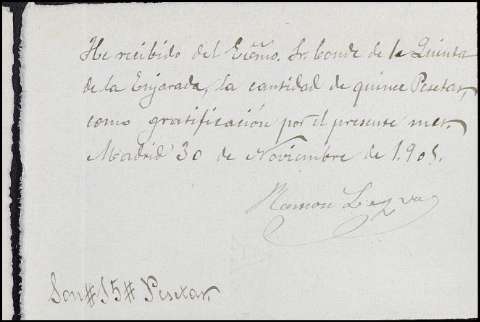 He recibido del Exćmo. Sr. Conde de la Quinta
de la Enjarada, la cantidad de quince Pesetas,
como gratificación por el presente mes.
Madrid 30 de Noviembre de 1.905.
Ramon
Son # 15 # Pesetas